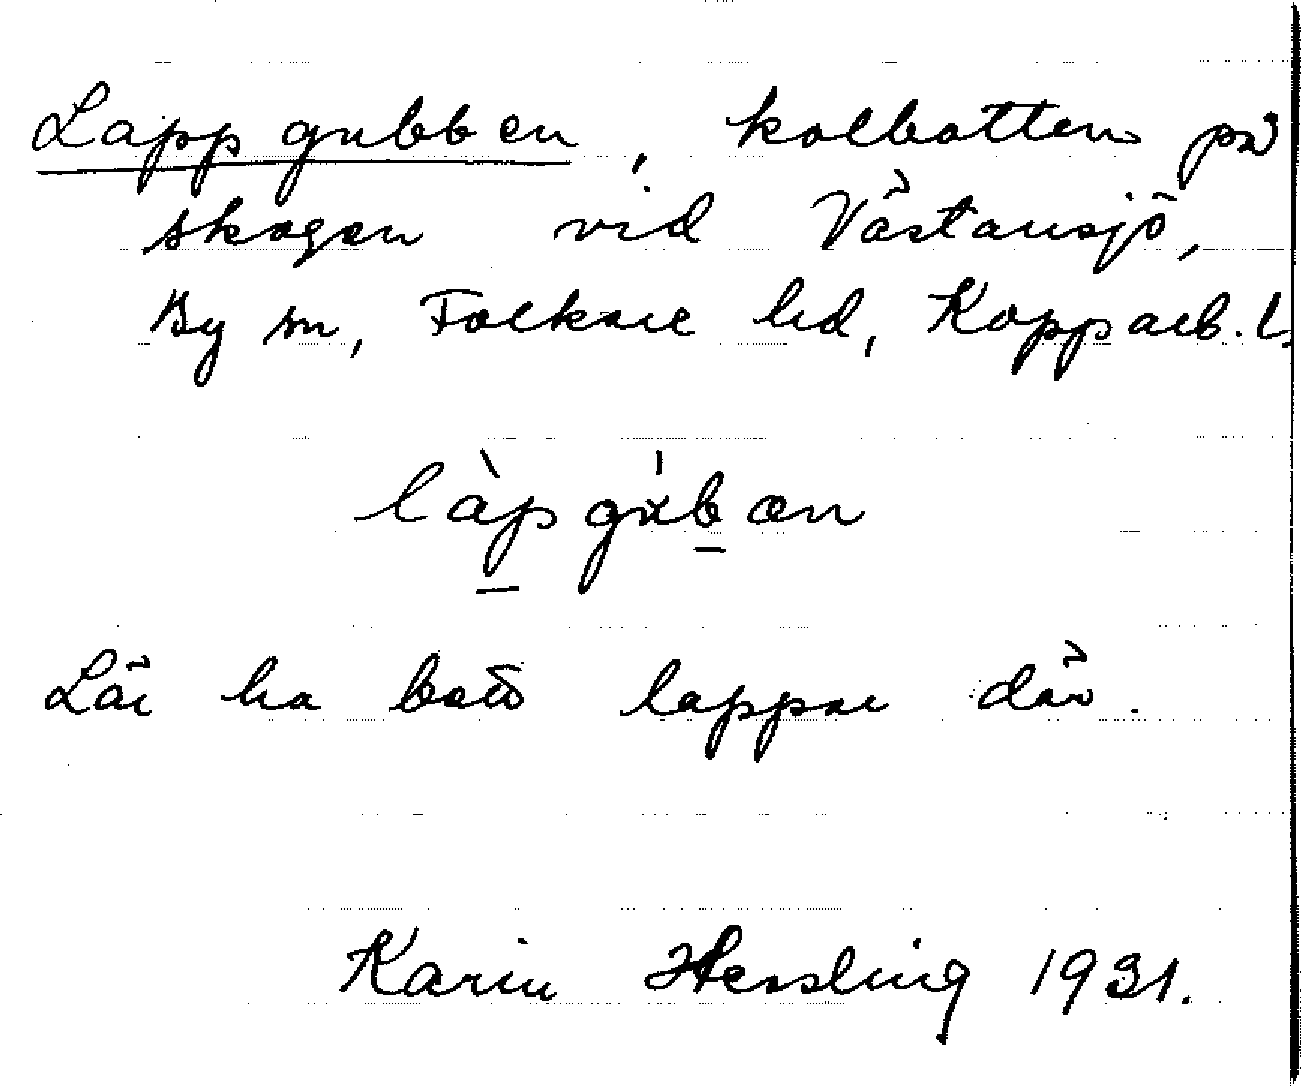 Lappgubben, kolbotten på
skogen vid Västansjö,
By sn, Folkare hd, Kopparb. l.
làpgu̍bæn
Lär ha bott lappar där.
Karin Hessling 1931.